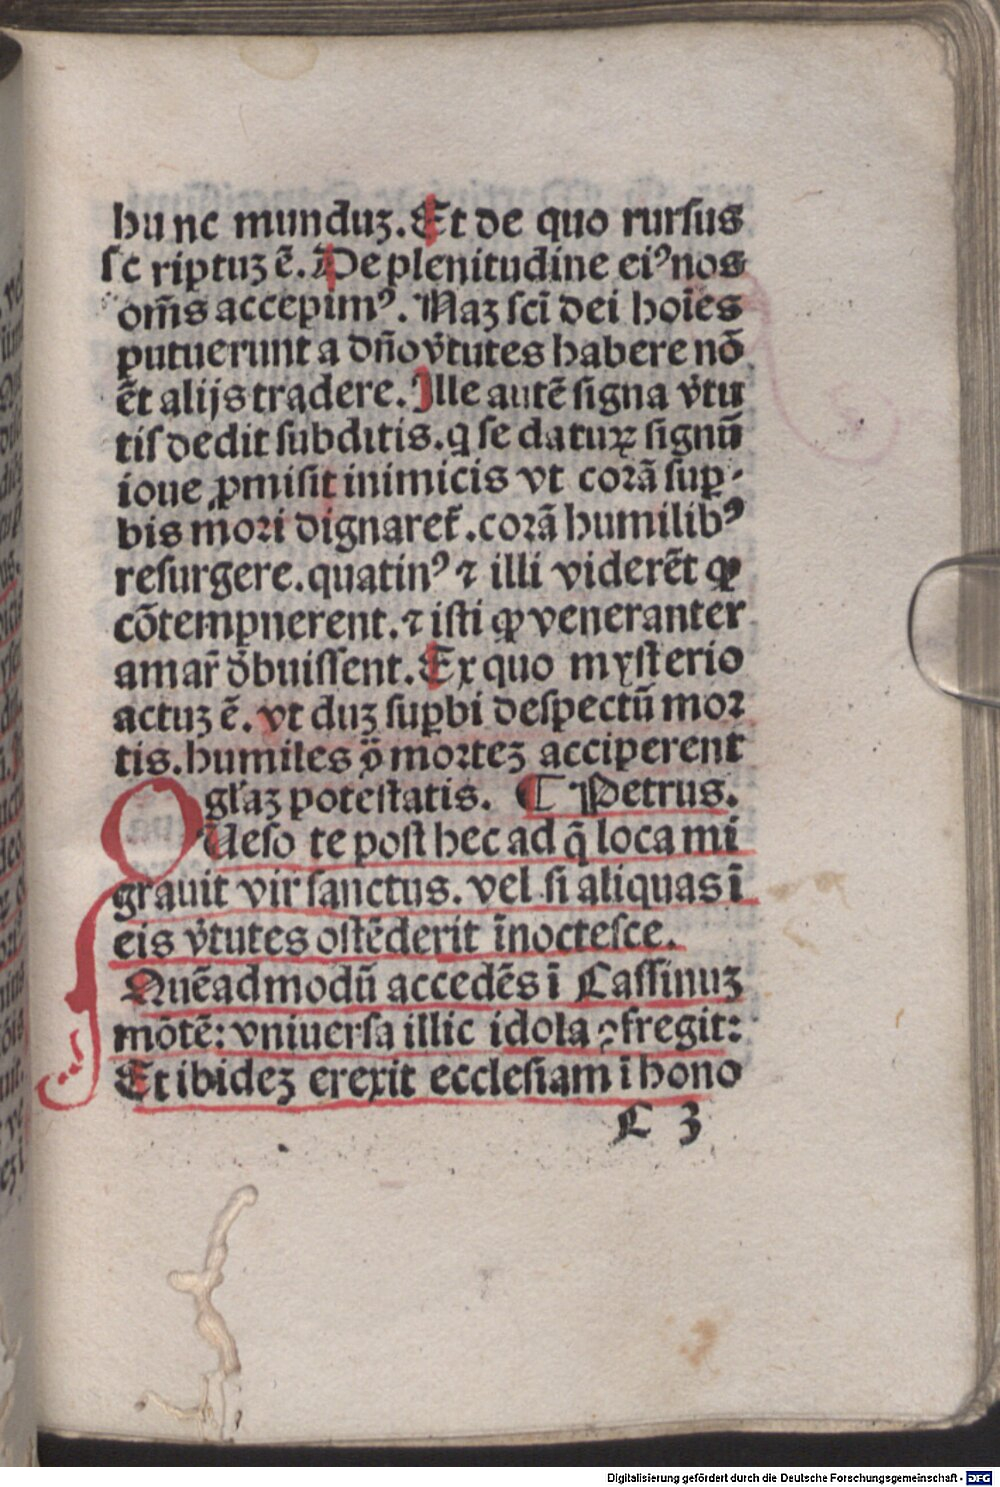 hunc munduʒ. Et de quo rursus
sc riptuʒ ē. De plenitudine eiꝰ nos
om̄s accepimꝰ. Naʒ sci dei hoīes
putuerunt a dn̄o v̓tutes habere nō
ēt alijs tradere. Ille autē signa v̓tu
tis dedit subditis. q se daturꝝ signū
ioue ꝓmisit inimicis vt corā suꝑ-
bis mori dignareť. corā humilibꝰ
resurgere. quatinꝰ ⁊ illi viderēt qꝫ
cōtempnerent. ⁊ isti qꝫ veneranter
amar̄ d̓buissent. Ex quo mysterio
actuʒ ē. vt duʒ suꝑbi despectū mor
tis. humiles ꝟo morteʒ acciperent
gl'aʒ potestatis. ¶ Petrus.
QUeso te post hec ad q̄ loca mi
grauit vir sanctus. vel si aliquas ī
eis v̓tutes ostēderit īnoctesce.
Quēadmodū accedēs ī Cassinuʒ
mōtē: vniuersa illic idola ꝯfregit:
Et ibideʒ erexit ecclesiam ī hono
C 3
Digitalisierung gefördert durch die Deutsche Forschungsgemeinschaft - DFG